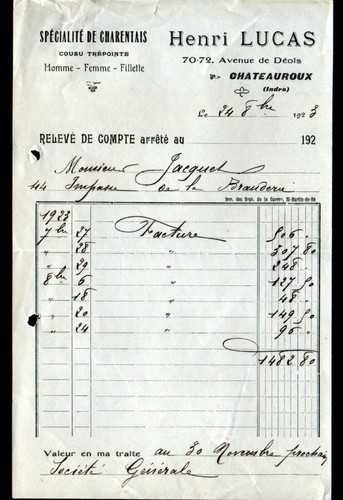 SPÉCIALITÉ DE CHARENTAIS
COUSU TRÉPOINTE
Homme - Femme - Fillette
Henri LUCAS
70-72, Avenue de Déols
CHATEAUROUX
(Indre)
Le 24 8bre 1923
RELEVÉ DE COMPTE arrêté au 192
Monsieur Jacquet
44 Impasse de la
1923
7bre 27 Facture 506 "
" 28 " 307 80
" 29 " 248 "
8bre 6 " 127 50
" 18 " 48 "
" 20 " 149 50
" 24 " 96 "
1482 80
Valeur en ma traite au 30 Novembre prochain
Société Générale